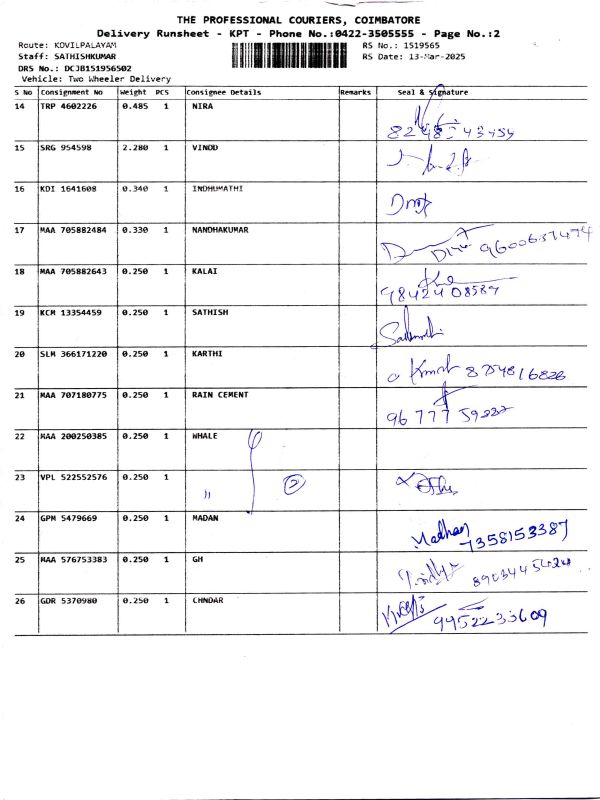 THE PROFESSIONAL COURIERS, COIMBATORE
Delivery Runsheet - KPT - Phone No.:0422-3505555 - Page No.:2
Route: KOVILPALAYAM RS No.: 1519565
Staff: SATHISHKUMAR RS Date: 13-Mar-2025
DRS No.: DCJB151956502
Vehicle: Two Wheeler Delivery
S No Consignment No Weight PCS Consignee Details Remarks Seal & Signature
14 TRP 4602226 0.485 1 NIRA
15 SRG 954598 2.280 1 VINOD
16 KDI 1641608 0.340 1 INDHUMATHI
17 MAA 705882484 0.330 1 NANDHAKUMAR
18 MAA 705882643 0.250 1 KALAI
98424 08589
19 KCM 13354459 0.250 1 SATHISH
20 SLM 366171220 0.250 1 KARTHI
8754816826
21 MAA 707180775 0.250 1 RAIN CEMENT
22 MAA 200250385 0.250 1 WHALE
23 VPL 522552576 0.250 1 " 2
24 GPM 5479669 0.250 1 MADAN Madhan
7358153387
25 MAA 576753383 0.250 1 GH
26 GDR 5370980 0.250 1 CHNDAR
9952233609